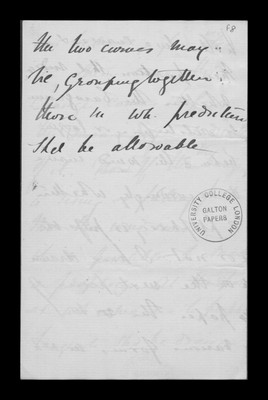 58
the two curves may
be, grouping together
those in wh. prediction
shd be allowable
UNIVERSITY COLLEGE LONDON
GALTON
PAPERS